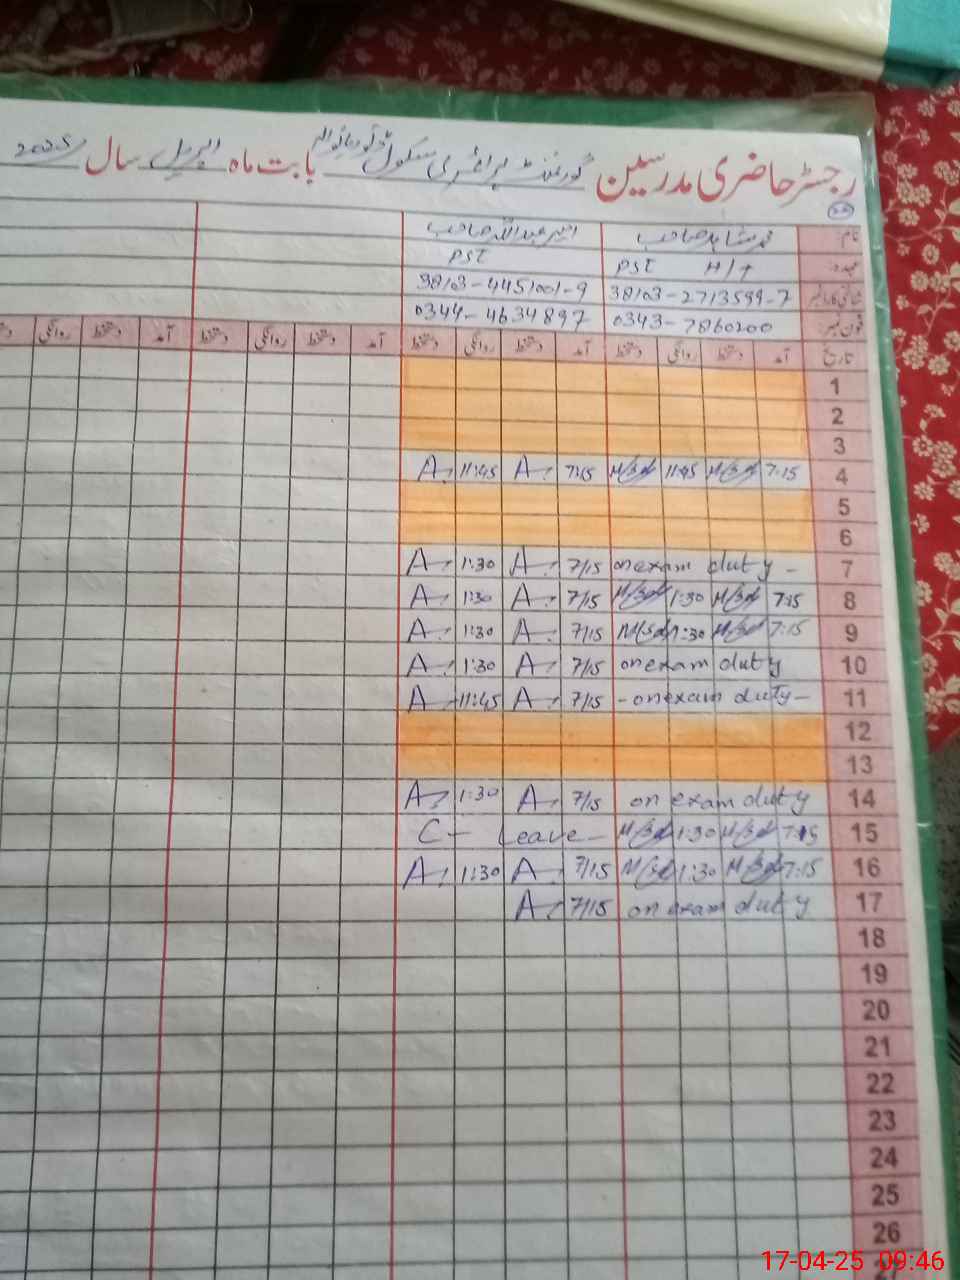 رجسٹر حاضری مدرسین گورنمنٹ پرائمری سکول بابت ماہ اپریل سال 2025
نام محمد شاہد صاحب امیر عبداللہ صاحب
عہدہ PST H/T PST
شناختی کارڈ نمبر 38103-2713599-7 38103-4451001-9
فون نمبر 0343-7860200 0344-4634897
تاریخ آمد دستخط روانگی دستخط آمد دستخط روانگی دستخط آمد دستخط روانگی دستخط آمد دستخط روانگی
1
2
3
A 11:45 A 7:15 11:45 7:15 4
5
6
A 1:30 A 7/15 on exam duty - 7
A 1:30 A 7/15 1:30 7:15 8
A 1:30 A 7/15 1:30 7:15 9
A 1:30 A 7/15 on exam duty 10
A 11:45 A 7/15 - on exam duty - 11
12
13
A 1:30 A 7/15 on exam duty 14
C - Leave - 1:30 7:15 15
A 1:30 A 7/15 1:30 7:15 16
A 7/15 on exam duty 17
18
19
20
21
22
23
24
25
26
17-04-25 09:46